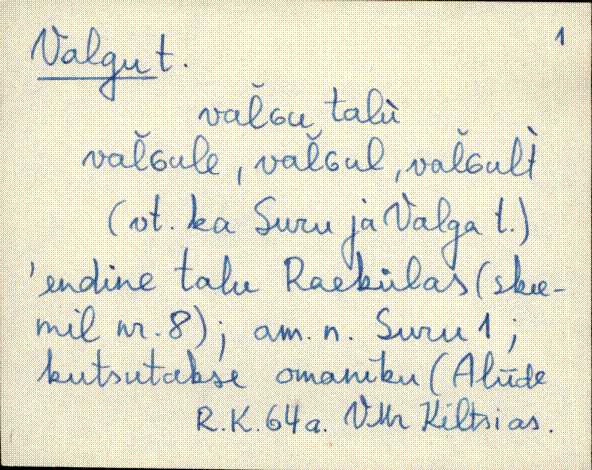 1
Valgu t.
val̆Gu talù
val̆Gule, val̆Gul, val̆Gul̀t
(vt. ka Suru ja Valga t.)
'endine talu Raekülas (skee-
mil nr. 8); am. n. Suru 1;
kutsutakse omaniku (Aliide
R.K. 64a. VMr Kiltsi as.